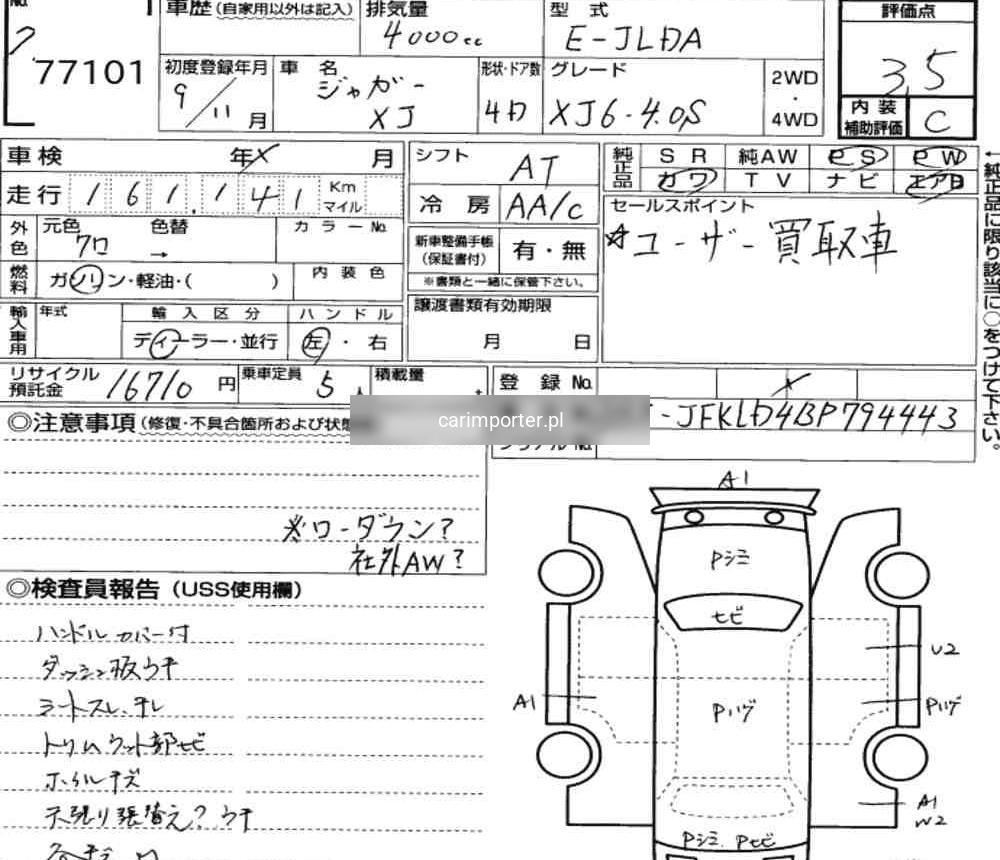 No.
77101
車歴(自家用以外は記入)
排気量
4000cc
型式
E-JLDA
評価点
3.5
初度登録年月
9/11月
車名
ジャガー
XJ
形状・ドア数
4D
グレード
XJ6・4.0S
2WD
・
4WD
内装
補助評価
C
車検 年 X 月
走行 161,141 Km
マイル
シフト
AT
冷房 AA/C
純正品
SR 純AW PS PW
カワ TV ナビ エアB
外色
元色
クロ
色替
→
カラーNo.
燃料
ガソリン・軽油・( )
内装色
新車整備手帳
(保証書付)
有・無
※書類と一緒に保管下さい。
セールスポイント
☆ユーザー買取車
輸入車用
年式
輸入区分
ディーラー・並行
ハンドル
左・右
譲渡書類有効期限
月 日
リサイクル
預託金
16710円
乗車定員
5人
積載量
登録No.
-JFKLD4BP794443
←純正品に限り該当に○をつけて下さい。
◎注意事項(修復・不具合箇所および状態
carimporter.pl
※ローダウン?
社外AW?
◎検査員報告(USS使用欄)
ハンドルカバー付
ダッシュ板ウキ
シートスレ、チレ
トリムウット部ヒビ
ホイルキズ
天張り張替え?ウキ
A1
Pシミ
ヒビ
U2
A1
Pハゲ
Pハゲ
A1
W2
Pシミ、Pヒビ